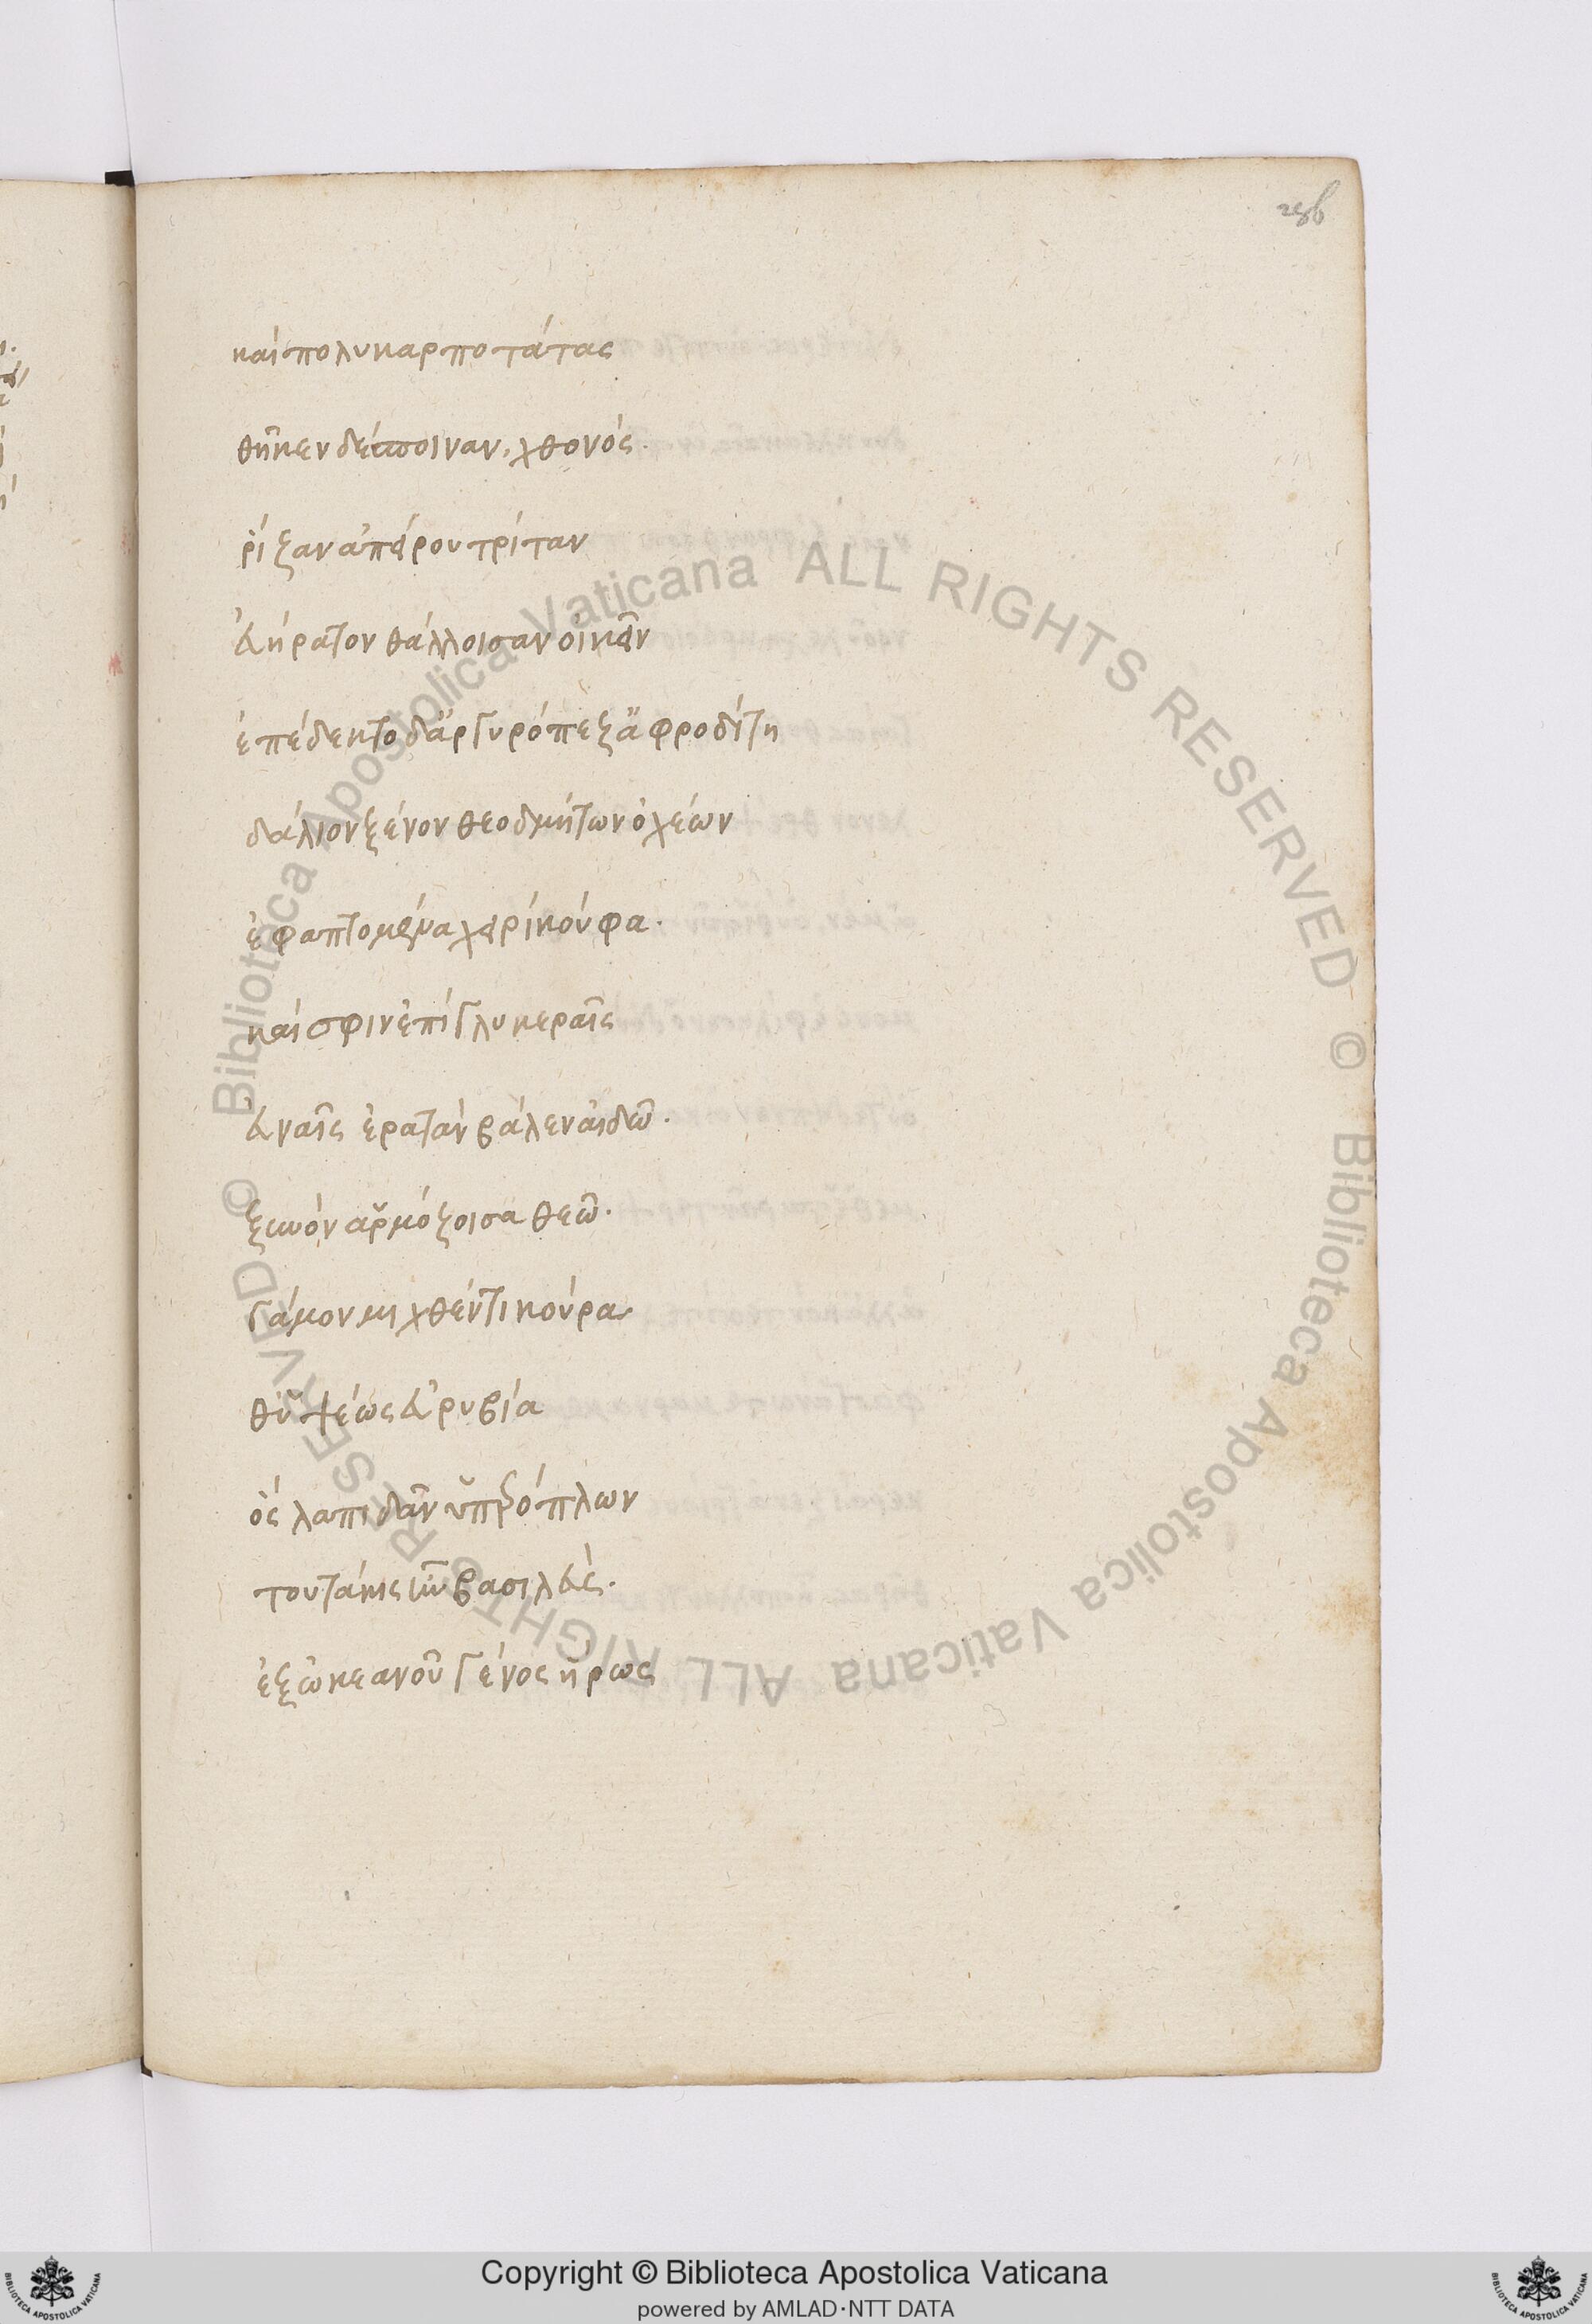 286
καὶ πολυκαρποτάτας
θῆκεν δέσποιναν, χθονὸς.
ῥίζαν ἀπείρου τρίταν
εὐήρατον θάλλοισαν οἰκεῖν
ὑπέδεκτο δ' ἀργυρόπεζ' ἀφροδίτη
δάλιον ξένον θεοδμήτων ὀχέων
ἐφαπτομένα χερὶ κούφα.
καὶ σφιν ἐπὶ γλυκεραῖς
εὐναῖς ἐρατὰν βάλεν αἰδῶ.
ξυνὸν ἁρμόζοισα θεῶ.
γάμον μιχθέντι κούρα
θ' ὑψέως εὐρυβία
ὃς λαπιθᾶν ὑπερόπλων
τουτάκις ἦν βασιλεὺς.
ἐξ ὠκεανοῦ γένος ἥρως
Biblioteca Apostolica Vaticana ALL RIGHTS RESERVED © Biblioteca Apostolica Vaticana ALL RIGHTS RESERVED ©
Copyright © Biblioteca Apostolica Vaticana
powered by AMLAD·NTT DATA
BIBLIOTECA APOSTOLICA VATICANA
BIBLIOTECA APOSTOLICA VATICANA